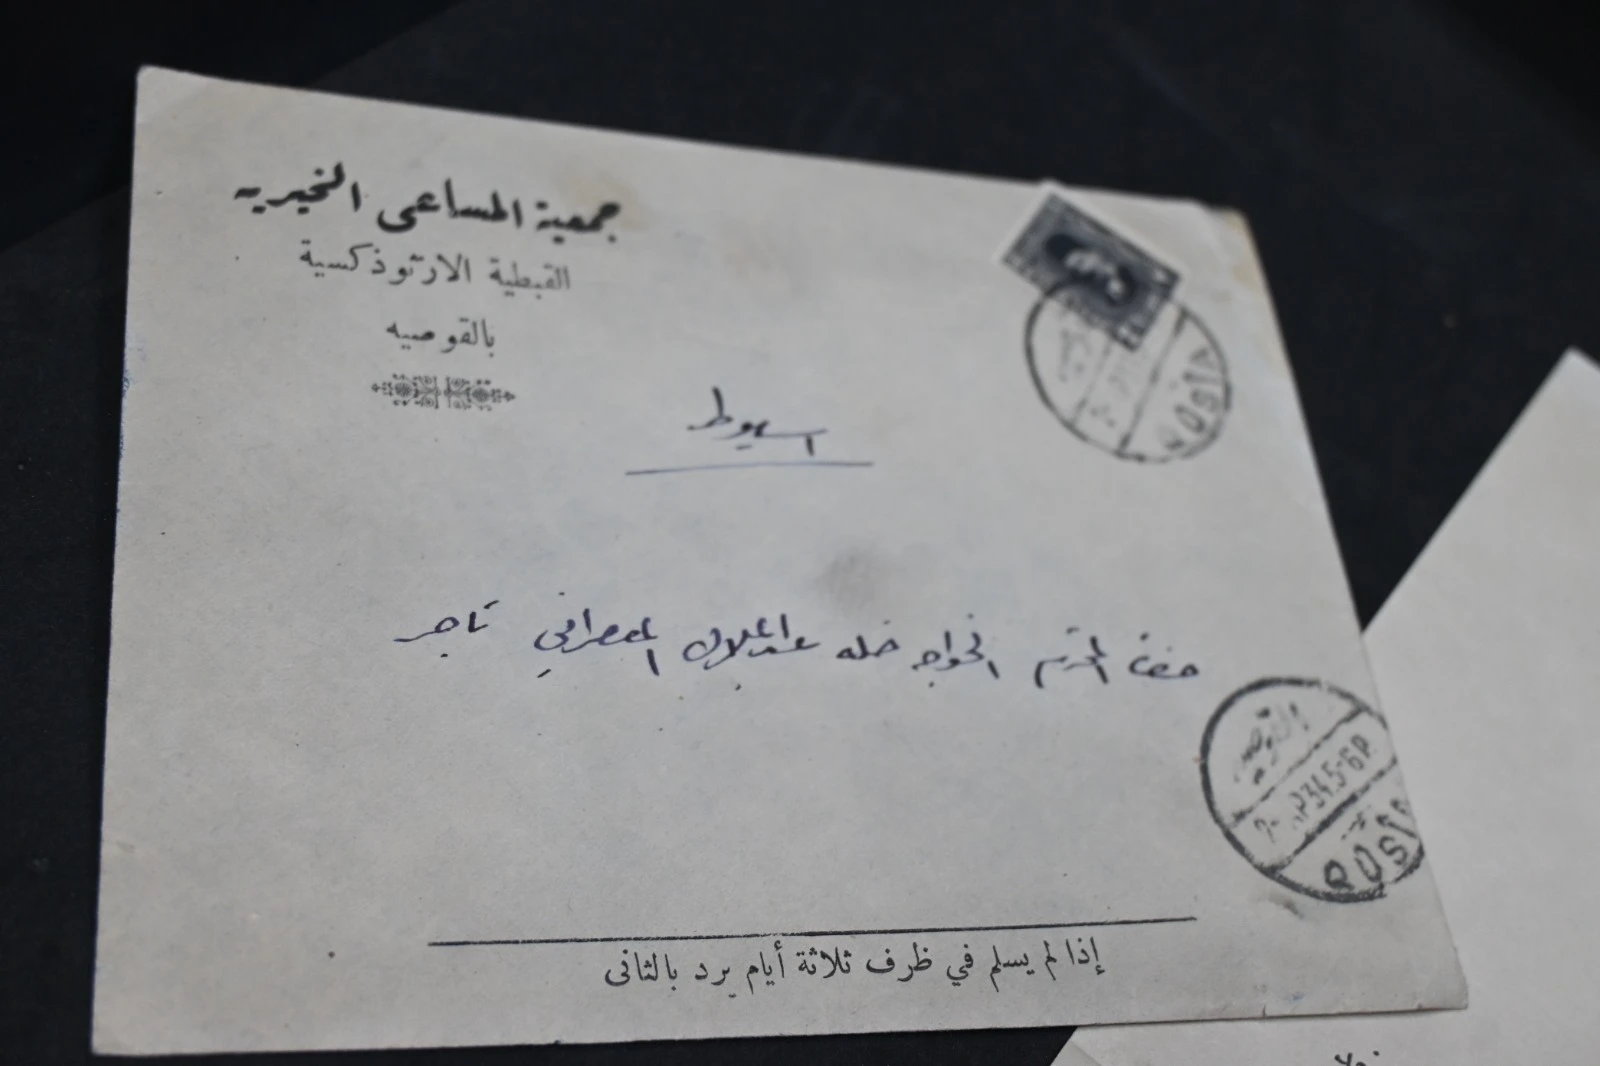 جمعية المساعى الخيريه
القبطية الارثوذكسية
بالقوصيه
اسيوط
حضرة المحترم الخواجه خله عبد الملاك المصرافي تاجر
QOSIA
القوصية
P.34.5-6P
QOSIA
إذا لم يسلم في ظرف ثلاثة أيام يرد بالثانى